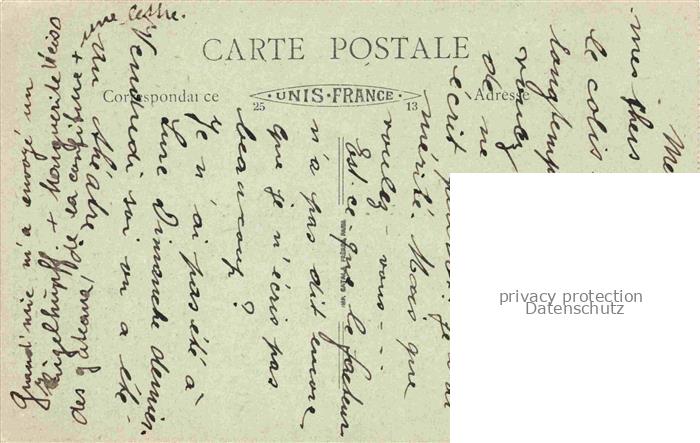 CARTE POSTALE
Correspondance
UNIS-FRANCE
25
13
Adresse
mes chers
le colis
longtemps
voulez
de ne
écrit
mérité. Mais que
voulez-vous
Est-ce que le facteur
n'a pas dit encore
que je n'écris pas
beaucoup?
Je n'ai pas été à
Lure Dimanche dernier.
Vendredi soir on a été
au théâtre
une lettre.
Grand'mie m'a envoyé un
Kugelhupff + Marguerite Weiss
des gâteaux, de la confiture +
privacy protection
Datenschutz